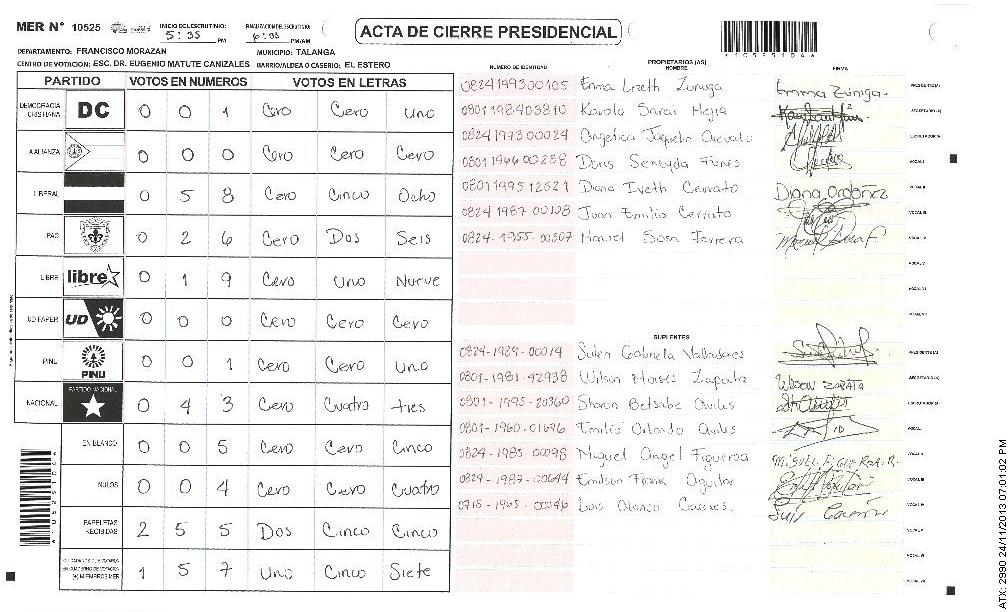 MER N° 10525 INICIO DEL ESCRUTINIO: 5:35 PM FINALIZACION DEL ESCRUTINIO: 6:00 PM/AM
ACTA DE CIERRE PRESIDENCIAL
DEPARTAMENTO: FRANCISCO MORAZAN MUNICIPIO: TALANGA
CENTRO DE VOTACION: ESC. DR. EUGENIO MATUTE CANIZALES BARRIO/ALDEA O CASERIO: EL ESTERO
PARTIDO VOTOS EN NUMEROS VOTOS EN LETRAS
DEMOCRACIA CRISTIANA DC 0 0 1 Cero Cero Uno
A.ALIANZA 0 0 0 Cero Cero Cero
LIBERAL 0 5 8 Cero Cinco Ocho
PAC 0 2 6 Cero Dos Seis
LIBRE libre 0 1 9 Cero Uno Nueve
UD FAPER UD 0 0 0 Cero Cero Cero
PINU PINU 0 0 1 Cero Cero Uno
NACIONAL PARTIDO NACIONAL 0 4 3 Cero Cuatro tres
EN BLANCO 0 0 5 Cero Cero Cinco
NULOS 0 0 4 Cero Cero Cuatro
PAPELETAS RECIBIDAS 2 5 5 Dos Cinco Cinco
1 5 7 Uno Cinco Siete
NUMERO DE IDENTIDAD PROPIETARIOS (AS) NOMBRE FIRMA
0824199300105 Enma Lizeth Zuniga Emma Zúniga. PRESIDENTE(A)
0801198403810 Karola Sarai Mejia SECRETARIO (A)
0824197300024 Angelica Jaquelin ESCRUTADOR(A)
0801196600288 Doris Funes VOCAL I
0801199512621 Dana Iveth Cerrato Diana Ordoñez VOCAL II
0824 1987 00128 Juan Emilio Cerrato VOCAL III
0824-1955-00507 Manuel Sosa Ferrera VOCAL IV
VOCAL V
VOCAL VI
VOCAL VII
SUPLENTES
0824-1989-00014 Sulen Gabriela Valladares PRESIDENTE(A)
0801-1981-42938 Wilson Moises Zapata WILSON ZAPATA SECRETARIO (A)
0801-1995-20360 Sharon Betsabe Aviles ESCRUTADOR(A)
0801-1960-01696 Emilio Orlando Aviles VOCAL I
0824-1985 00098 Miguel Angel Figueroa VOCAL II
0824-1987-00644 Emilson Frank Aguilar VOCAL III
0715-1965-00046 Luis Alonso VOCAL IV
VOCAL V
VOCAL VI
VOCAL VII
ATX: 2990 24/11/2013 07:01:02 PM